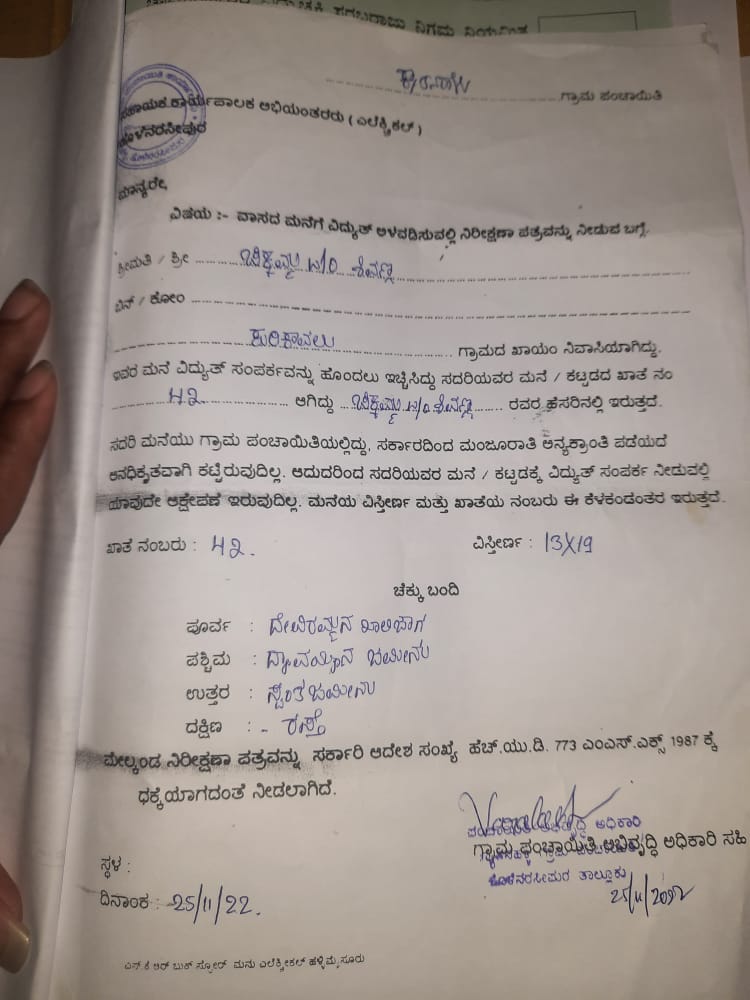 ಗ್ರಾಮ ಪಂಚಾಯಿತಿ
ಸಹಾಯಕ ಕಾರ್ಯಪಾಲಕ ಅಭಿಯಂತರರು ( ಎಲೆಕ್ಟ್ರಿಕಲ್ )
ಹೊಳೆನರಸೀಪುರ
ಮಾನ್ಯರೇ,
ವಿಷಯ :- ವಾಸದ ಮನೆಗೆ ವಿದ್ಯುತ್ ಅಳವಡಿಸುವಲ್ಲಿ ನಿರೀಕ್ಷಣಾ ಪತ್ರವನ್ನು ನೀಡುವ ಬಗ್ಗೆ.
ಶ್ರೀಮತಿ / ಶ್ರೀ ಚಿಕ್ಕಮ್ಮ w/o ಶಿವಣ್ಣ
ಬಿನ್ / ಕೋಂ
ಕುರಿಕಾವಲು ಗ್ರಾಮದ ಖಾಯಂ ನಿವಾಸಿಯಾಗಿದ್ದು,
ಇವರ ಮನೆ ವಿದ್ಯುತ್ ಸಂಪರ್ಕವನ್ನು ಹೊಂದಲು ಇಚ್ಛಿಸಿದ್ದು ಸದರಿಯವರ ಮನೆ / ಕಟ್ಟಡದ ಖಾತೆ ನಂ
42 ಆಗಿದ್ದು ಚಿಕ್ಕಮ್ಮ w/o ಶಿವಣ್ಣ ರವರ ಹೆಸರಿನಲ್ಲಿ ಇರುತ್ತದೆ.
ಸದರಿ ಮನೆಯು ಗ್ರಾಮ ಪಂಚಾಯಿತಿಯಲ್ಲಿದ್ದು, ಸರ್ಕಾರದಿಂದ ಮಂಜೂರಾತಿ ಅನ್ಯಕ್ರಾಂತಿ ಪಡೆಯದೆ
ಅನಧಿಕೃತವಾಗಿ ಕಟ್ಟಿರುವುದಿಲ್ಲ. ಆದುದರಿಂದ ಸದರಿಯವರ ಮನೆ / ಕಟ್ಟಡಕ್ಕೆ ವಿದ್ಯುತ್ ಸಂಪರ್ಕ ನೀಡುವಲ್ಲಿ
ಯಾವುದೇ ಆಕ್ಷೇಪಣೆ ಇರುವುದಿಲ್ಲ. ಮನೆಯ ವಿಸ್ತೀರ್ಣ ಮತ್ತು ಖಾತೆಯ ನಂಬರು ಈ ಕೆಳಕಂಡಂತರ ಇರುತ್ತದೆ.
ಖಾತೆ ನಂಬರು : 42. ವಿಸ್ತೀರ್ಣ : 13X19
ಚೆಕ್ಕು ಬಂದಿ
ಪೂರ್ವ : ದೇವಿರಮ್ಮನ ಖಾಲಿಜಾಗ
ಪಶ್ಚಿಮ : ದ್ಯಾವಯ್ಯನ ಜಮೀನು
ಉತ್ತರ : ಸ್ವಂತ ಜಮೀನು
ದಕ್ಷಿಣ : - ರಸ್ತೆ
ಮೇಲ್ಕಂಡ ನಿರೀಕ್ಷಣಾ ಪತ್ರವನ್ನು ಸರ್ಕಾರಿ ಆದೇಶ ಸಂಖ್ಯೆ ಹೆಚ್.ಯು.ಡಿ. 773 ಎಂಎಸ್.ಎಕ್ಸ್ 1987 ಕ್ಕೆ
ಧಕ್ಕೆಯಾಗದಂತೆ ನೀಡಲಾಗಿದೆ.
ಗ್ರಾಮ ಪಂಚಾಯಿತಿ ಅಭಿವೃದ್ಧಿ ಅಧಿಕಾರಿ ಸಹಿ
ಹೊಳೆನರಸೀಪುರ ತಾಲ್ಲೂಕು
ಸ್ಥಳ :
ದಿನಾಂಕ : 25/11/22. 25/11/2022
ಎಸ್.ಕೆ ಆರ್ ಬುಕ್ ಸ್ಟೋರ್ ಮನು ಎಲೆಕ್ಟ್ರಿಕಲ್ ಹಳ್ಳಿಮೈಸೂರು